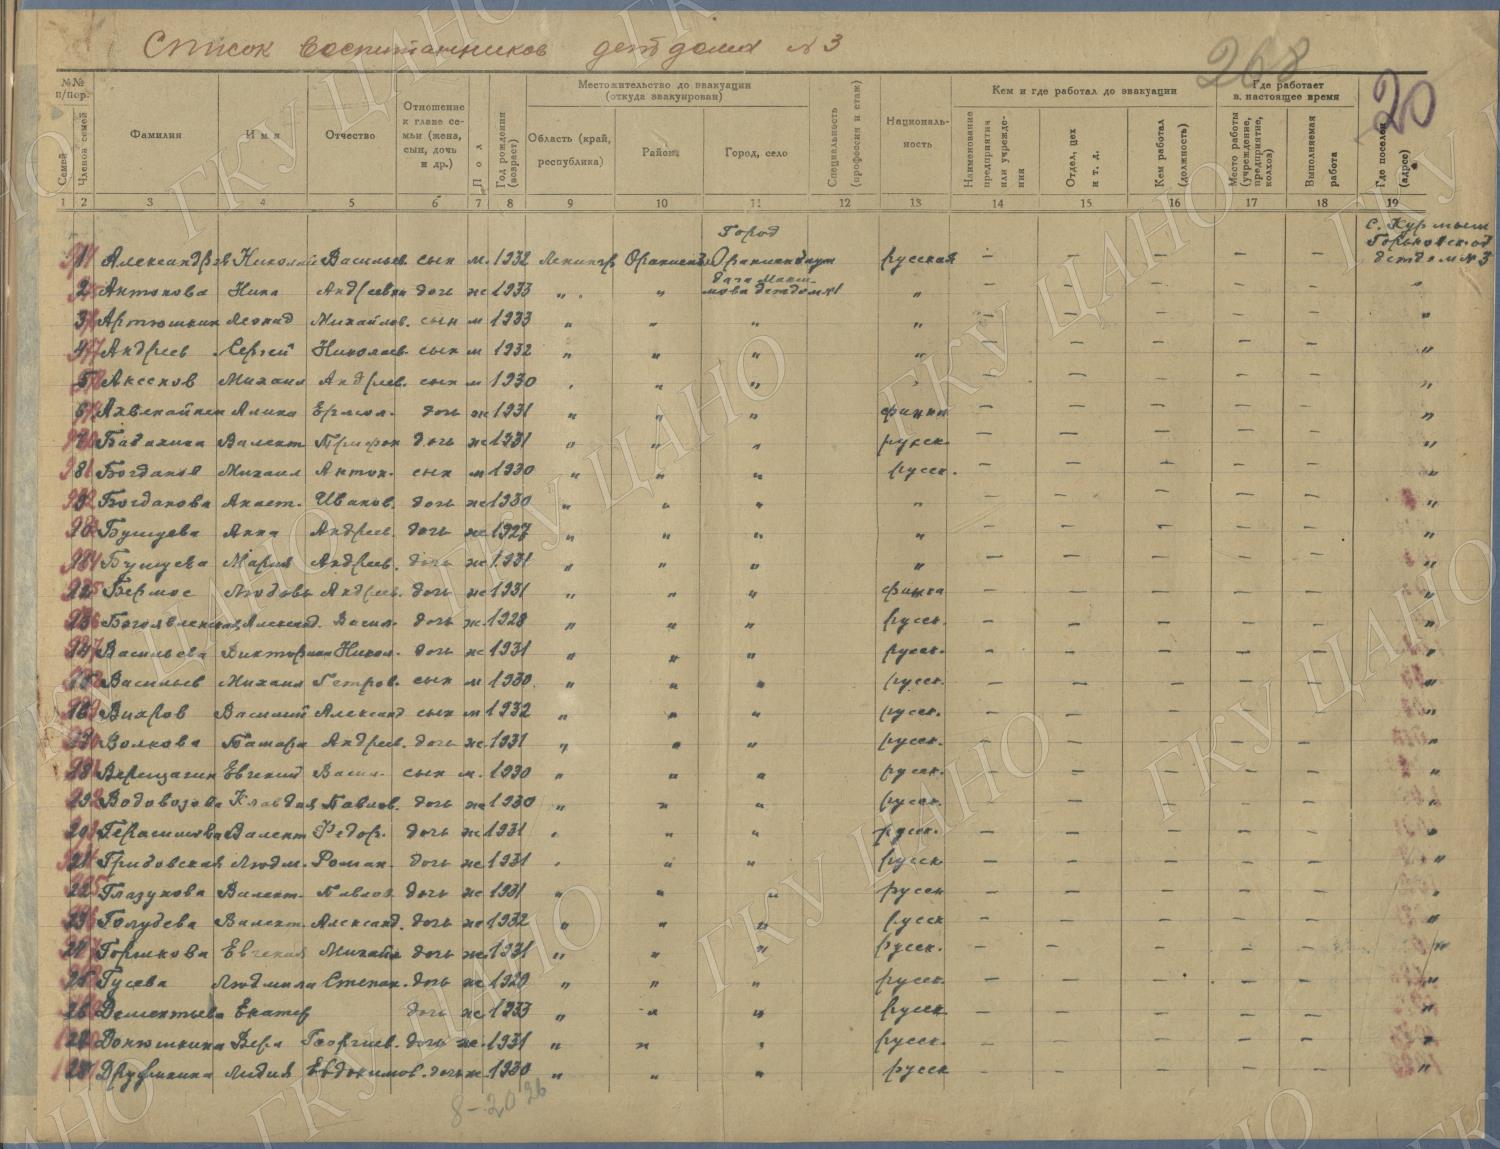 Список воспитанников детдома №3
268
20
№№ п/пор.
Семей
Членов семей
Фамилия
Имя
Отчество
Отношение к главе семьи (жена, сын, дочь и др.)
Пол
Год рождения (возраст)
Местожительство до эвакуации (откуда эвакуирован)
Область (край, республика)
Район
Город, село
Специальность (профессия и стаж)
Националь-ность
Кем и где работал до эвакуации
Наименование предприятия или учреждения
Отдел, цех и т. д.
Кем работал (должность)
Где работает в настоящее время
Место работы (учреждение, предприятие, колхоз)
Выполняемая работа
Где поселен (адрес)
1 2 3 4 5 6 7 8 9 10 11 12 13 14 15 16 17 18 19
Город с. Курмыш
Горьковск. од
1 Александров Николай Васильев. сын м. 1932 Ленингр Ораниенб Ораниенбаум русская — — — — — детдом №3
2 Антонова Нина Андреевна дочь ж 1933 " " мова детдом №1 " — — — — — "
3 Артюшкин Леонид Михайлов. сын м 1933 " " " " — — — — — "
4 Андреев Сергей Николаев. сын м 1932 " " " " — — — — — "
5 Аксенов Михаил Андреев. сын м 1930 " " " " — — — — — "
6 Алина Ермол. дочь ж 1931 " " " финка — — — — — "
7 Валент Трифон дочь ж 1931 " " " русск. — — — — — "
8 Богданов Михаил Антон. сын м 1930 " " " русск. — — — — — "
9 Богданова Анаст. Иванов. дочь ж 1930 " " " " — — — — — "
10 Бушуева Анна Андреев. дочь ж 1927 " " " " — — — — — "
11 Бушуева Мария Андреев. дочь ж 1931 " " " " — — — — — "
12 Любовь Андреев. дочь ж 1931 " " " финка — — — — — "
13 Богоявленская Александ. Васил. дочь ж. 1928 " " " русск. — — — — — "
14 Васильева Викторина Никол. дочь ж 1931 " " " русск. — — — — — "
15 Васильев Михаил Петров. сын м 1930. " " " русск. — — — — — "
16 Вихров Василий Александ сын м 1932 " " " русск. — — — — — "
17 Волкова Тамара Андреев. дочь ж 1931 " " " русск. — — — — — "
18 Верещагин Евгений Васил. сын м. 1930 " " " русск. — — — — — "
19 Водовозова Клавдия Павлов. дочь ж 1930 " " " русск. — — — — — "
20 Герасимова Валент Федор. дочь ж 1931 " " " русск. — — — — — "
21 Людм. Роман. дочь ж 1931 " " " русск — — — — — "
22 Глазунова Валент. Павлов. дочь ж 1931 " " " русск — — — — — "
23 Голубева Валент. Александ. дочь ж 1932 " " " русск — — — — — "
24 Горшкова Евгения Михайл дочь ж. 1931 " " " русск. — — — — — "
25 Гусева Людмила Степан. дочь ж 1920 " " " русск. — — — — — "
26 Дементьева Екатер дочь ж 1933 " " " русск — — — — — "
Вера Георгиев. дочь ж. 1931 " " " русск. — — — — — "
28 Лидия Евдокимов. дочь ж. 1930 " " " русск — — — — — "
8-20 26
ГКУ ЦАНО